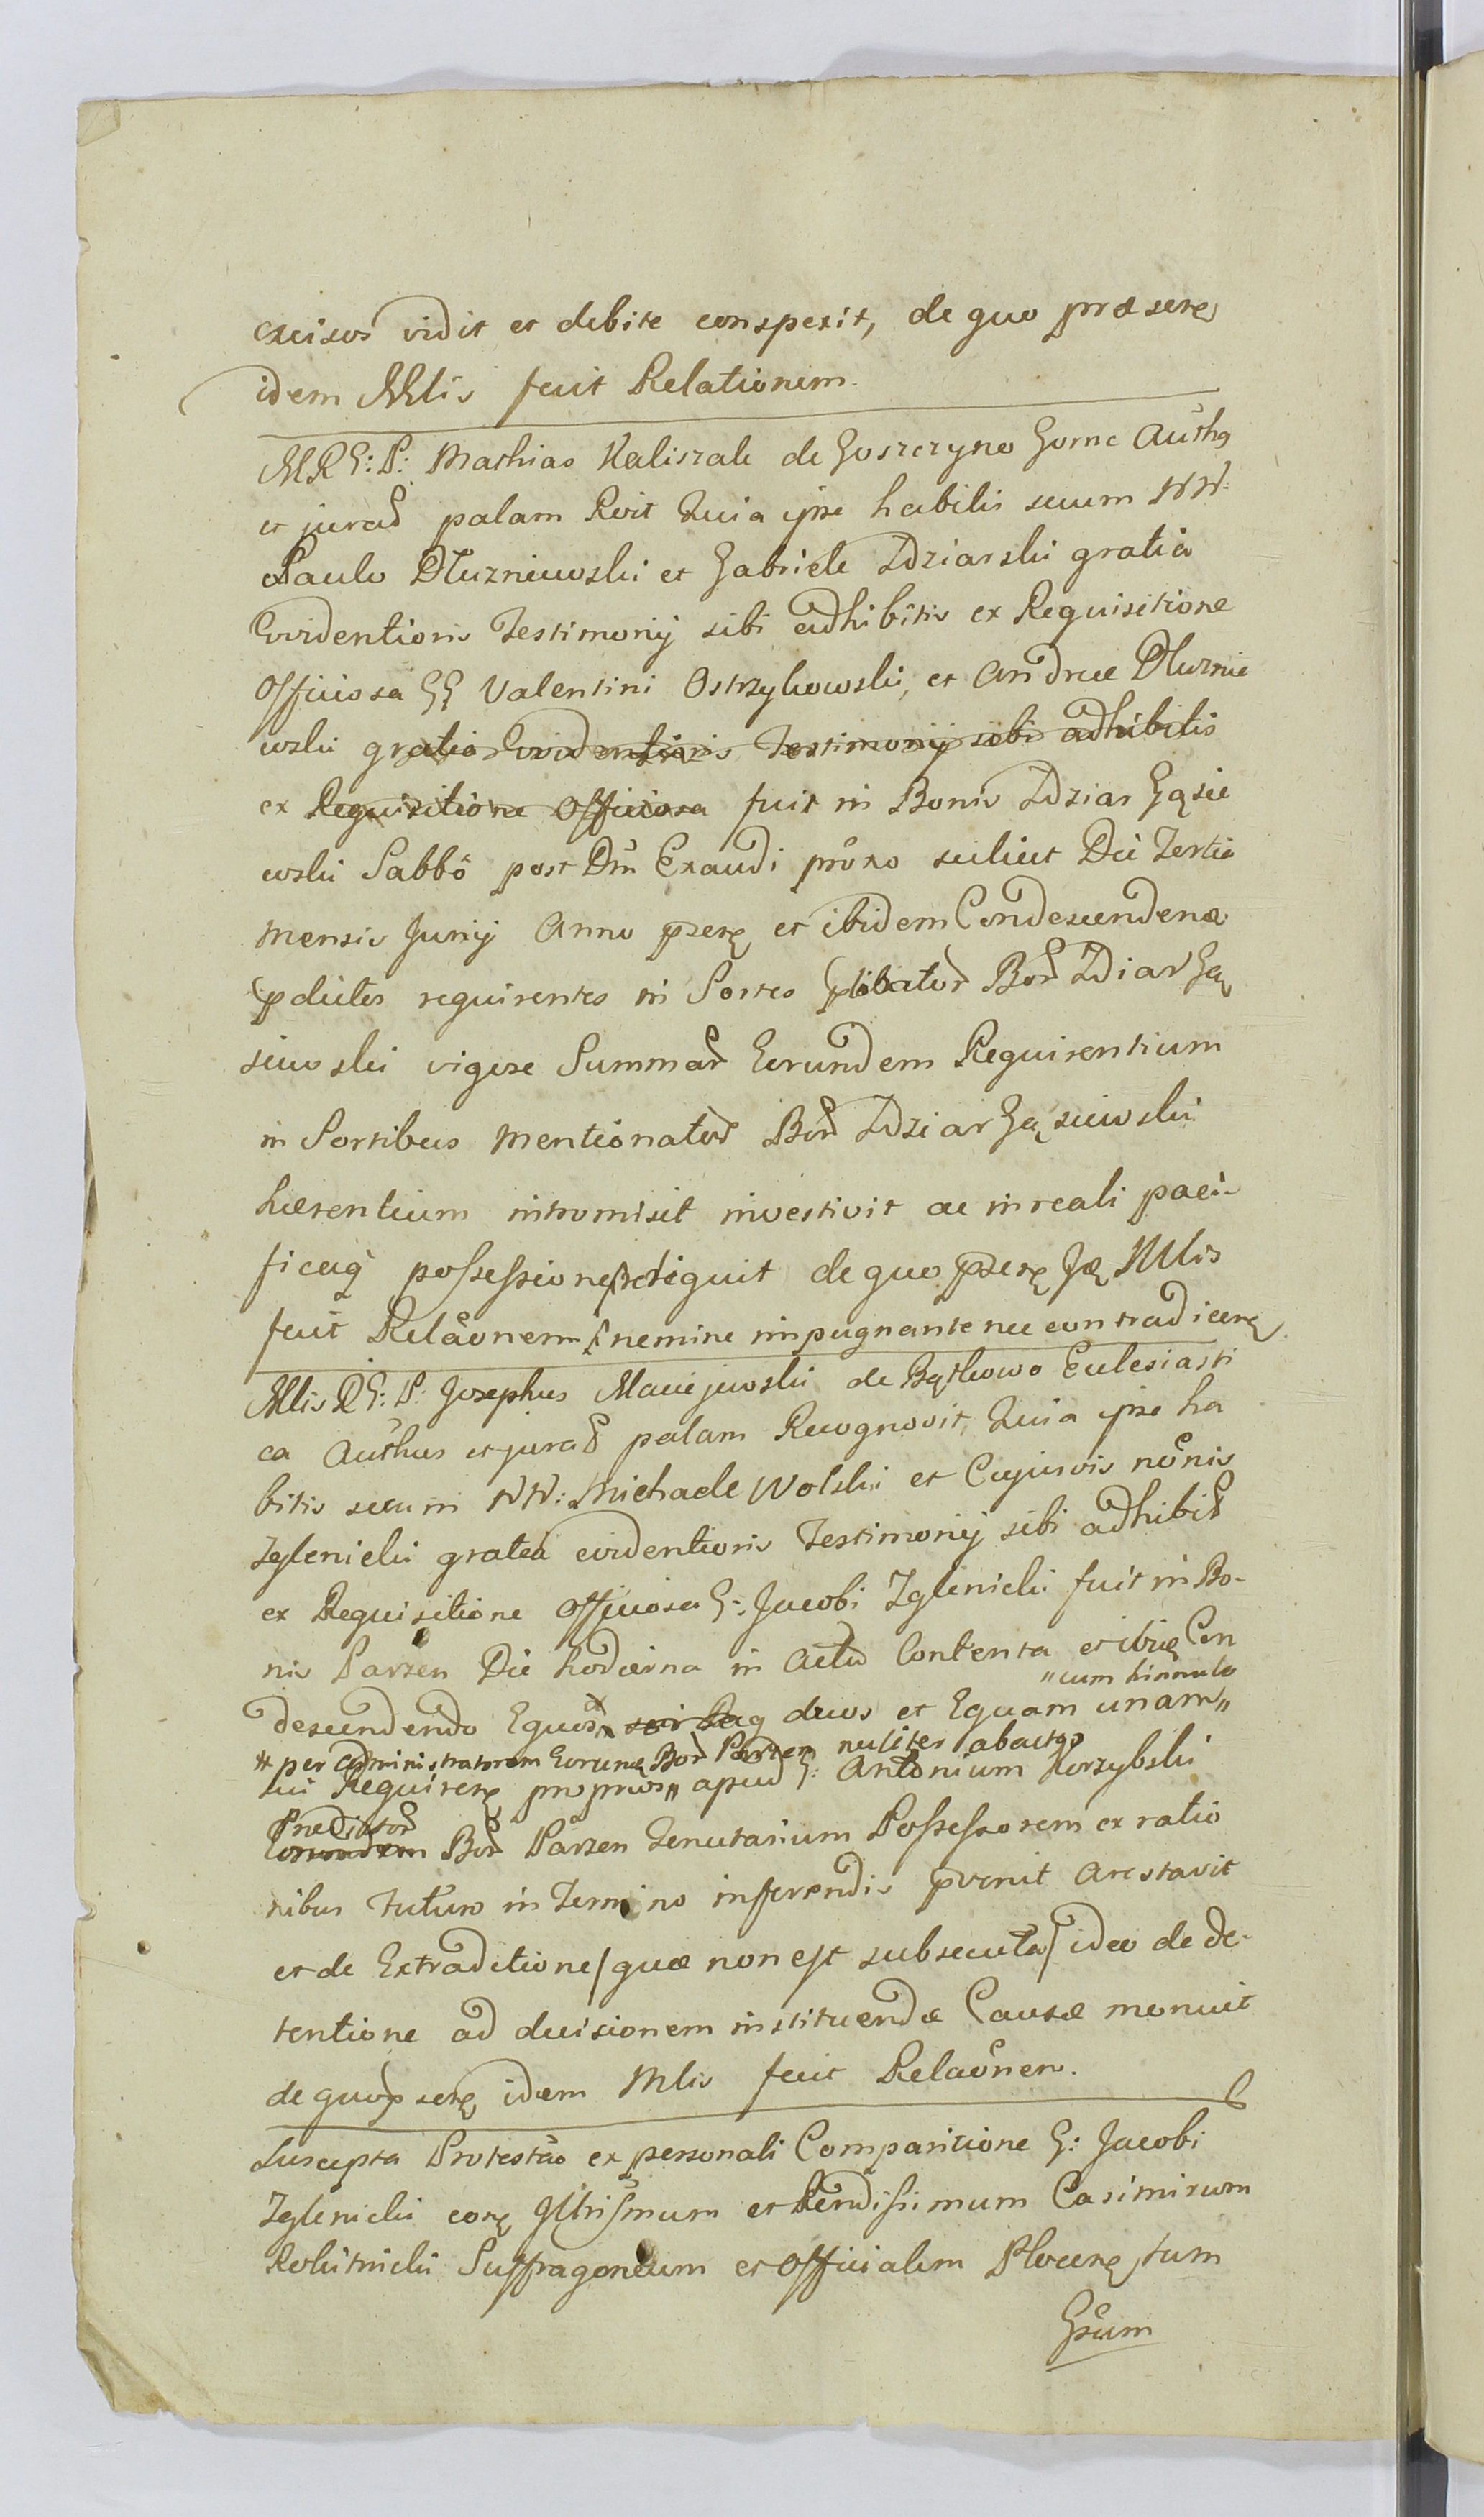 excisos vidit et debite conspexit, de quo præsens
idem Mlis fecit Relationem.
MRG: P: Mathias Kaliszak de Goszczyno Gorne Auth9
et jurad palam Rvit Quia ipse habitis secum NN:
Paulo Dłuzniewski et Gabriele Zdziarski gratia
Evidentioris Testimonij sibi adhibitis ex Requisitione
Officiosa GG Valentini Ostrzykowski, et Andreæ Dłuznie
wski gratia Evidentioris Testimonij sibi adhibitis
ex Requisitione Officiosa fuit in Bonis Zdziar Gąsie
wski Sabbo post Dm Exaudi proxo scilicet Die Tertia
Mensis Junij Anno præse et ibidem Condescendendo
requirentes in Sortes Bor Zdziar Gą
siewski vigore Summar Eorundem Requirentium
in Sortibus Mentionator Bor Zdziar Gąsiewski
hærentium intromisit investivit ac in reali paci-
ficaq possessione reliquit de quo præse Mlis
fecit Relaonem nemine impugnante nec contradicen
Mlis RG: P: Josephus Maciejewski de Bątkowo Ecclesiasti
ca Authus et jurad palam Recognovit, Quia ipse ha
bitis secum NN: Michaele Wolski et Cujusvis nonis
Zglenicki gratia evidentioris Testimonij sibi adhibit
ex Requisitione Officiosa G: Jacobi Zglinicki fuit in Bo-
nis Parzen Die hodierna in Actu Contenta et ibid Con
"cum hinnulo
descendendo Equos duos et Equam unam"
* per administratorem Eorund Bor Parzen nuliter abactos
sui Requiren proprios" apud G: Antonium Korzybski
Prædictor
Eorundem Bor Parzen Tenutarium Possessorem ex ratio
nibus futuro in Termino inferendis pvenit Arestavit
et de Extraditione/quæ non est subsecuta/ideo de de-
tentione ad decisionem instituendæ Causæ monuit
de quo præse idem Mlis fecit Relaonem.
Suscepta Protestao ex personali Comparitione G: Jacobi
Zglenicki cora Illrissmum et Rendissimum Casimirum
Rokitnicki Suffraganeum et Officialem Plocen tum
Gsum